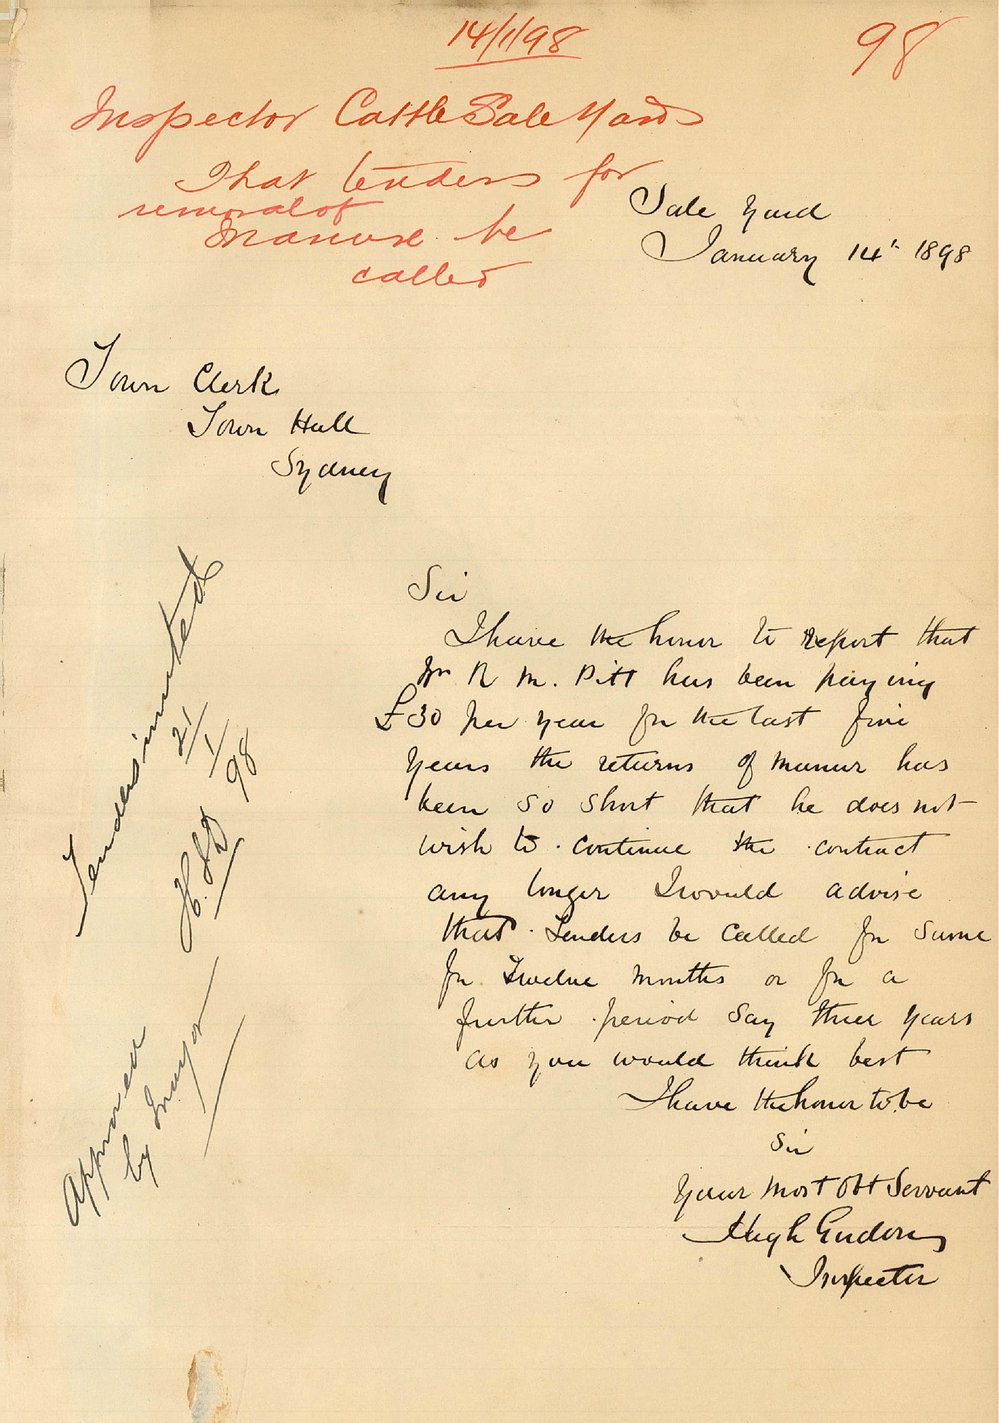 14/1/98
98
Inspector Cattle Sale Yards
That tenders for
removal of
Manure be
called
Sale Yard
January 14th 1898
Town Clerk
Town Hall
Sydney
Sir
I have the honor to report that
Mr R M. Pitt has been paying
£30 per year for the last five
years the returns of manure has
been so short that he does not
wish to continue the contract
any longer I would advise
that Tenders be called for same
for Twelve months or for a
further period say three years
as you would think best
I have the honor to be
Sir
Your Most Obt Servant
Hugh
Inspector
Tenders invited
21/1/98
Approved
by Mayor